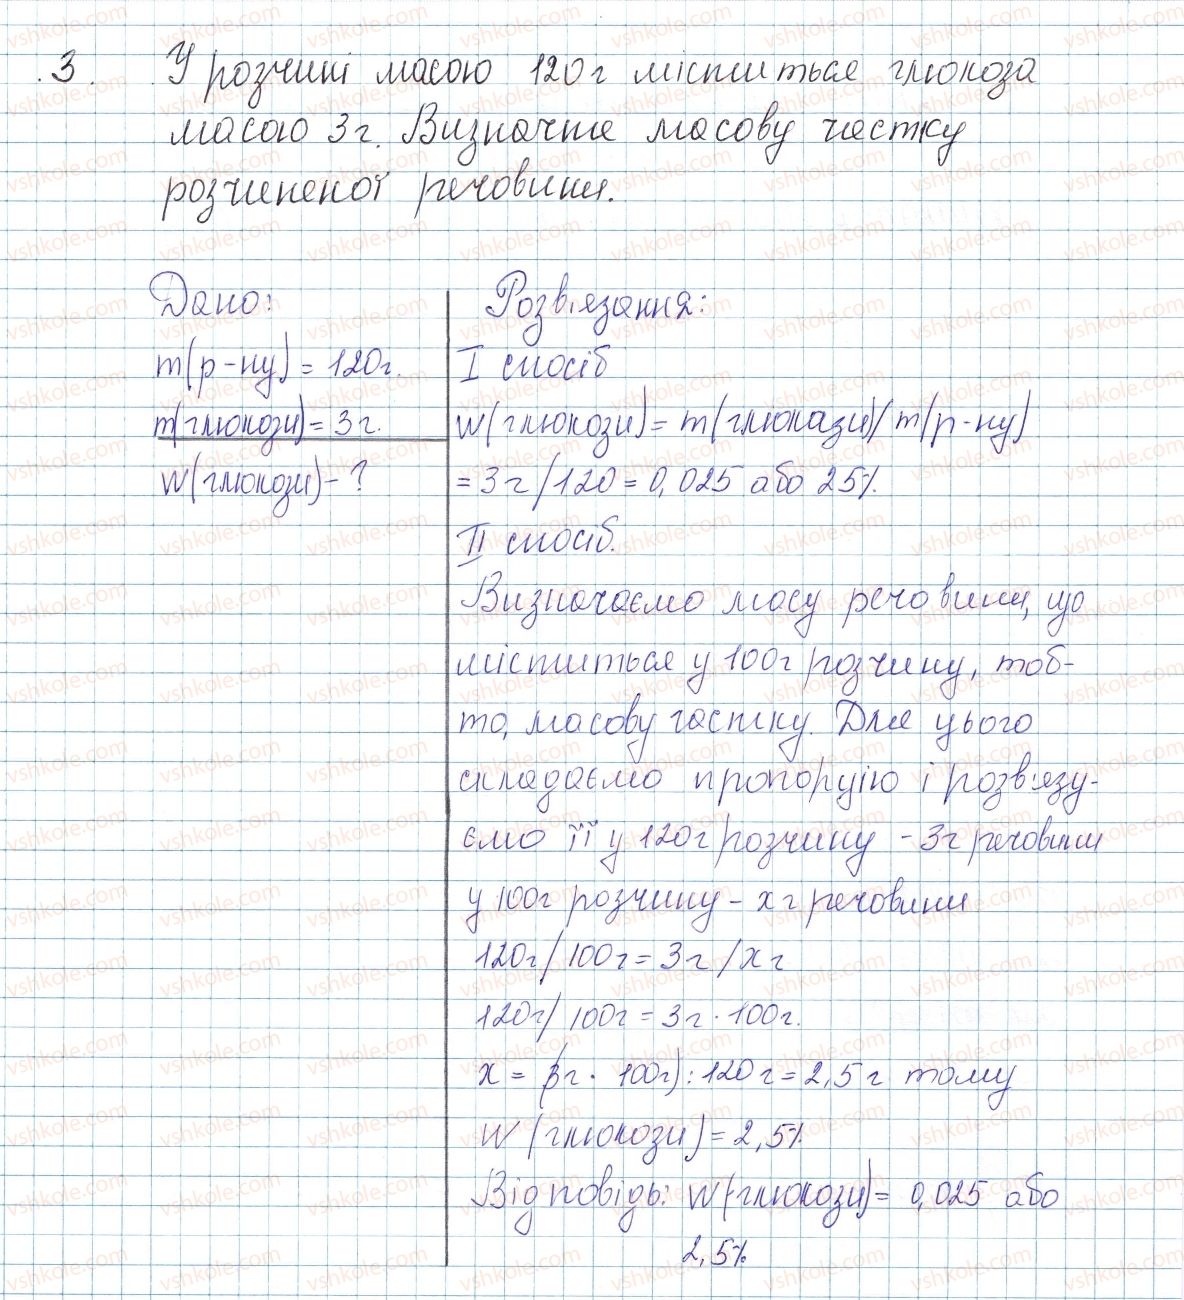 3. У розчині масою 120 г міститься глюкоза
масою 3 г. Визначте масову частку
розчиненої речовини.
Дано:
m(р-ну) = 120г.
m(глюкози) = 3 г.
W(глюкози) - ?
Розв'язання:
I спосіб
W(глюкози) = m(глюкази)/m(р-ну)
= 3 г/120 = 0,025 або 25%.
II спосіб.
Визначаємо масу речовини, що
міститься у 100г розчину, тоб-
то, масову частку. Для цього
складаємо пропорцію і розв'язу-
ємо її у 120г розчину - 3г речовини
у 100г розчину - x г речовини
120г/100г = 3г/x г
120г/100г = 3г · 100г.
x = (3г · 100г) : 120г = 2,5г тому
W(глюкози) = 2,5%
Відповідь: W(глюкози) = 0,025 або
2,5%